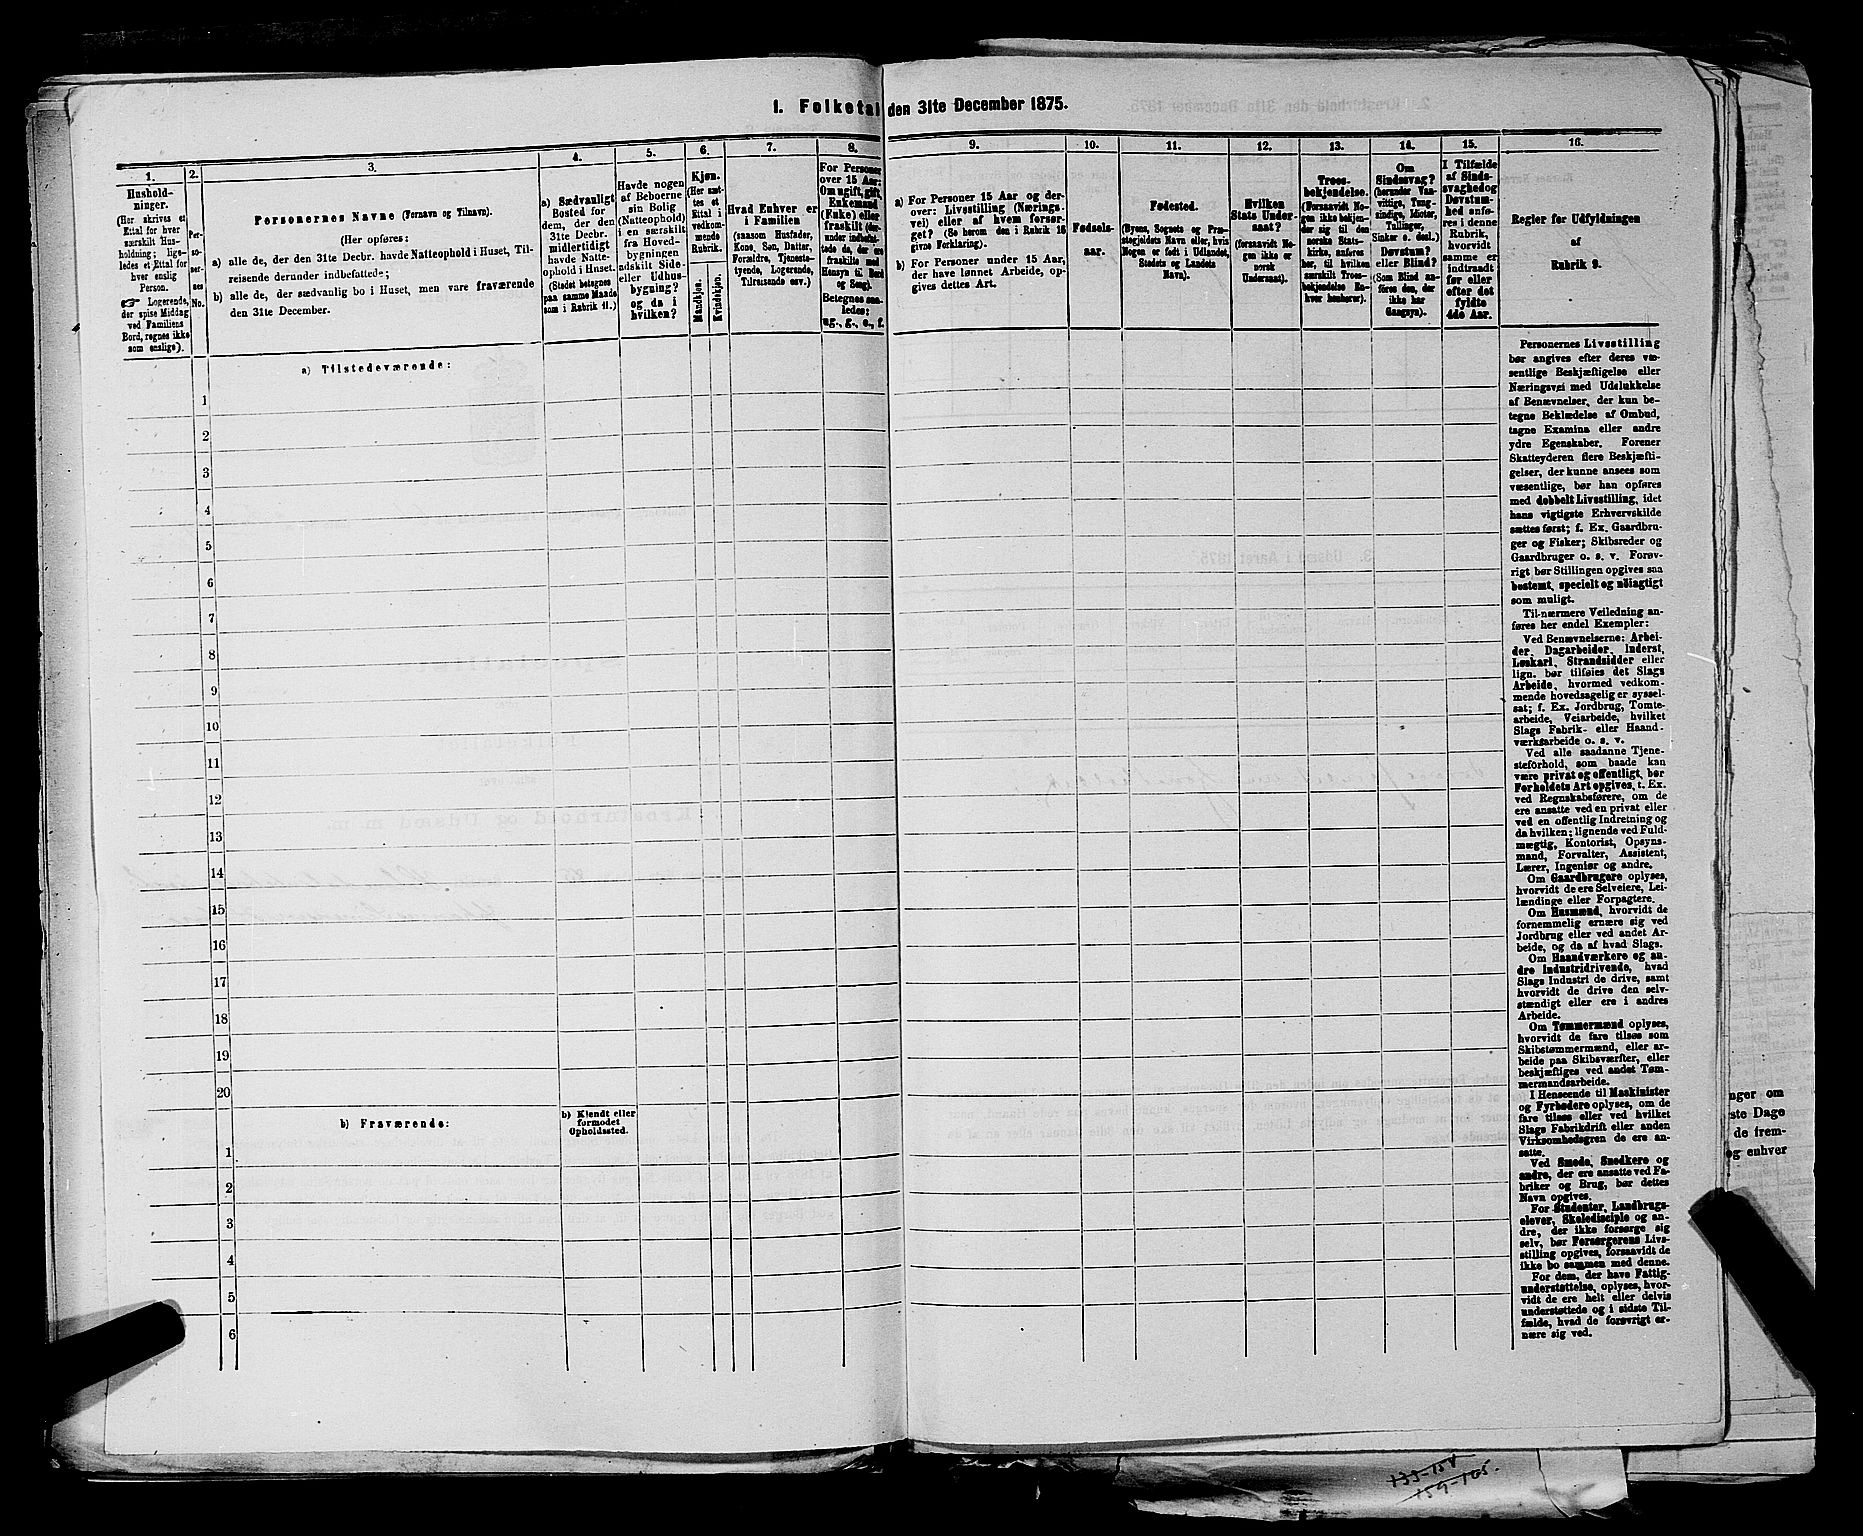 I. Folketal den 31te December 1875.
1.
Hushold-
ninger.
(Her skrives et
Ettal for hver
særskilt Hus-
holdning; lige-
ledes et Ettal for
hver enslig
Person.
☞ Logerende,
der spise Middag
ved Familiens
Bord, regnes ikke
som enslige).
2.
Per-
so-
ner-
nes
No.
3.
Personernes Navne (Fornavn og Tilnavn).
(Her opføres:
a) alle de, der den 31te Decbr. havde Natteophold i Huset, Til-
reisende derunder indbefattede;
b) alle de, der sædvanlig bo i Huset, men vare fraværende
den 31te December.
4.
a) Sædvanligt
Bosted for
dem, der den
31te Decbr.
midlertidigt
havde Natte-
ophold i Huset.
(Stedet betegnes
paa samme Maade
som i Rubrik 11.)
5.
Havde nogen
af Beboerne
sin Bolig
(Natteophold)
i en særskilt
fra Hoved-
bygningen
adskilt Side-
eller Udhus-
bygning?
og da i
hvilken?
6.
Kjøn.
(Her sæt-
tes et
Ettal i
vedkom-
mende
Rubrik.
Mandkjøn.
Kvindekjøn.
7.
Hvad Enhver er
i Familien
(saasom Husfader,
Kone, Søn, Datter,
Forældre, Tjeneste-
tyende, Logerende,
Tilreisende osv.)
8.
For Personer
over 15 Aar:
Om ugift, gift,
Enkemand
(Enke) eller
fraskilt (der-
under indbefat-
tede de, der ere
fraskilte med
Hensyn til Bord
og Seng).
Betegnes saa-
ledes:
ug., g., e., f.
9.
a) For Personer 15 Aar og der-
over: Livsstilling (Nærings-
vei) eller af hvem forsør-
get? (Se herom den i Rubrik 16
givne Forklaring).
b) For Personer under 15 Aar,
der have lønnet Arbeide, op-
gives dettes Art.
10.
Fødsels-
aar.
11.
Fødested.
(Byens, Sognets og Præ-
stegjeldets Navn eller, hvis
Nogen er født i Udlandet,
Stedets og Landets
Navn).
12.
Hvilken
Stats Under-
saat?
(forsaavidt No-
gen ikke er
norsk
Undersaat).
13.
Troes-
bekjendelse.
(Forsaavidt No-
gen ikke bekjen-
der sig til den
norske Stats-
kirke, anføres
her, til hvilken
særskilt Troes-
bekjendelse En-
hver henhører).
14.
Om
Sindssvag?
(herunder Van-
vittige, Tung-
sindige, Idioter,
Tullinger,
Sinker o. desl.)
Døvstum?
eller Blind?
(Som Blind an-
føres den, der
ikke har
Gangsyn).
15.
I Tilfælde
af Sinds-
svaghed og
Døvstum-
hed anfø-
res i denne
Rubrik,
hvorvidt
samme er
indtraadt
før eller
efter det
fyldte
4de Aar.
16.
Regler for Udfyldningen
af
Rubrik 9.
a) Tilstedeværende:
1
2
3
4
5
6
7
8
9
10
11
12
13
14
15
16
17
18
19
20
b) Fraværende:
b) Kjendt eller
formodet
Opholdssted.
1
2
3
4
5
6
Personernes Livsstilling
bør angives efter deres væ-
sentlige Beskjæftigelse eller
Næringsvei med Udelukkelse
af Benævnelser, der kun be-
tegne Beklædelse af Ombud,
tagne Examina eller andre
ydre Egenskaber. Forener
Skatteyderen flere Beskjæfti-
gelser, der kunne ansees som
væsentlige, bør han opføres
med dobbelt Livsstilling, idet
hans vigtigste Erhvervskilde
sættes først; f. Ex. Gaardbru-
ger og Fisker; Skibsreder og
Gaardbruger o. s. v. Forøv-
rigt bør Stillingen opgives saa
bestemt, specielt og nöiagtigt
som muligt.
Til nærmere Veiledning an-
føres her endel Exempler:
Ved Benævnelserne: Arbei-
der, Dagarbeider, Inderst,
Løskarl, Strandsidder eller
lign. bør tilføies det Slags
Arbeide, hvormed vedkom-
mende hovedsagelig er syssel-
sat; f. Ex. Jordbrug, Tomte-
arbeide, Veiarbeide, hvilket
Slags Fabrik- eller Haand-
værksarbeide o. s. v.
Ved alle saadanne Tjene-
steforhold, som baade kan
være privat og offentligt, bør
Forholdets Art opgives, t. Ex.
ved Regnskabsførere, om de
ere ansatte ved en privat eller
ved en offentlig Indretning og
da hvilken; lignende ved Fuld-
mægtig, Kontorist, Opsyns-
mand, Forvalter, Assistent,
Lærer, Ingeniør og andre.
Om Gaardbrugere oplyses,
hvorvidt de ere Selveiere, Lei-
lændinge eller Forpagtere.
Om Husmænd, hvorvidt de
fornemmelig ernære sig ved
Jordbrug eller ved andet Ar-
beide, og da af hvad Slags.
Om Haandværkere og an-
dre Industridrivende, hvad
Slags Industri de drive, samt
hvorvidt de drive den selv-
stændigt eller ere i andres
Arbeide.
Om Tømmermænd oplyses,
hvorvidt de fare tilsøs som
Skibstømmermænd, eller ar-
beide paa Skibsværfter, eller
beskjæftiges ved andet Tøm-
mermandsarbeide.
I Henseende til Maskinister
og Fyrbødere oplyses, om de
fare tilsøs eller ved hvilket
Slags Fabrikdrift eller anden
Virksomhedsgren de ere an-
satte.
Ved Smede, Snedkere og
andre, der ere ansatte ved Fa-
briker og Brug, bør dettes
Navn opgives.
For Studenter, Landbrugs-
elever, Skoledisciple og an-
dre, der ikke forsørge sig
selv, bør Forsørgerens Livs-
stilling opgives, forsaavidt de
ikke bo sammen med denne.
For dem, der have Fattig-
understøttelse, oplyses, hvor-
vidt de ere helt eller delvis
understøttede og i sidste Til-
fælde, hvad de forøvrigt er-
nære sig ved.
nger om
ste Dage
de frem-
og enhver
133-154
159-165.